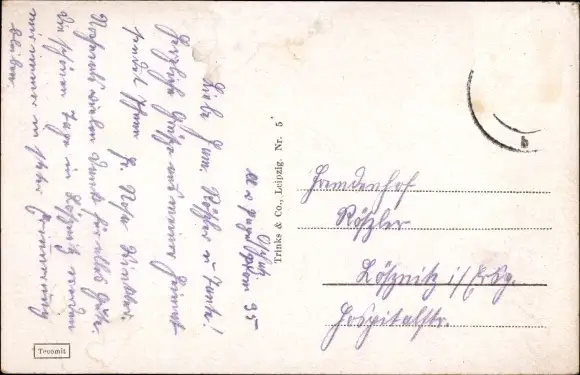 Liebe Fam. Rößler u. Tante!
Herzliche Grüße aus meiner Heimat
sendet Ihnen
Nochmals vielen Dank für alles Gute.
Die schönen Tage in Lößnitz werden
mir immer in steter Erinnerung
bleiben.
35
Trinks & Co., Leipzig. Nr. 5
Fremdenhof
Rößler
Lößnitz i/Erzg.
Hospitalstr.
Tecomit